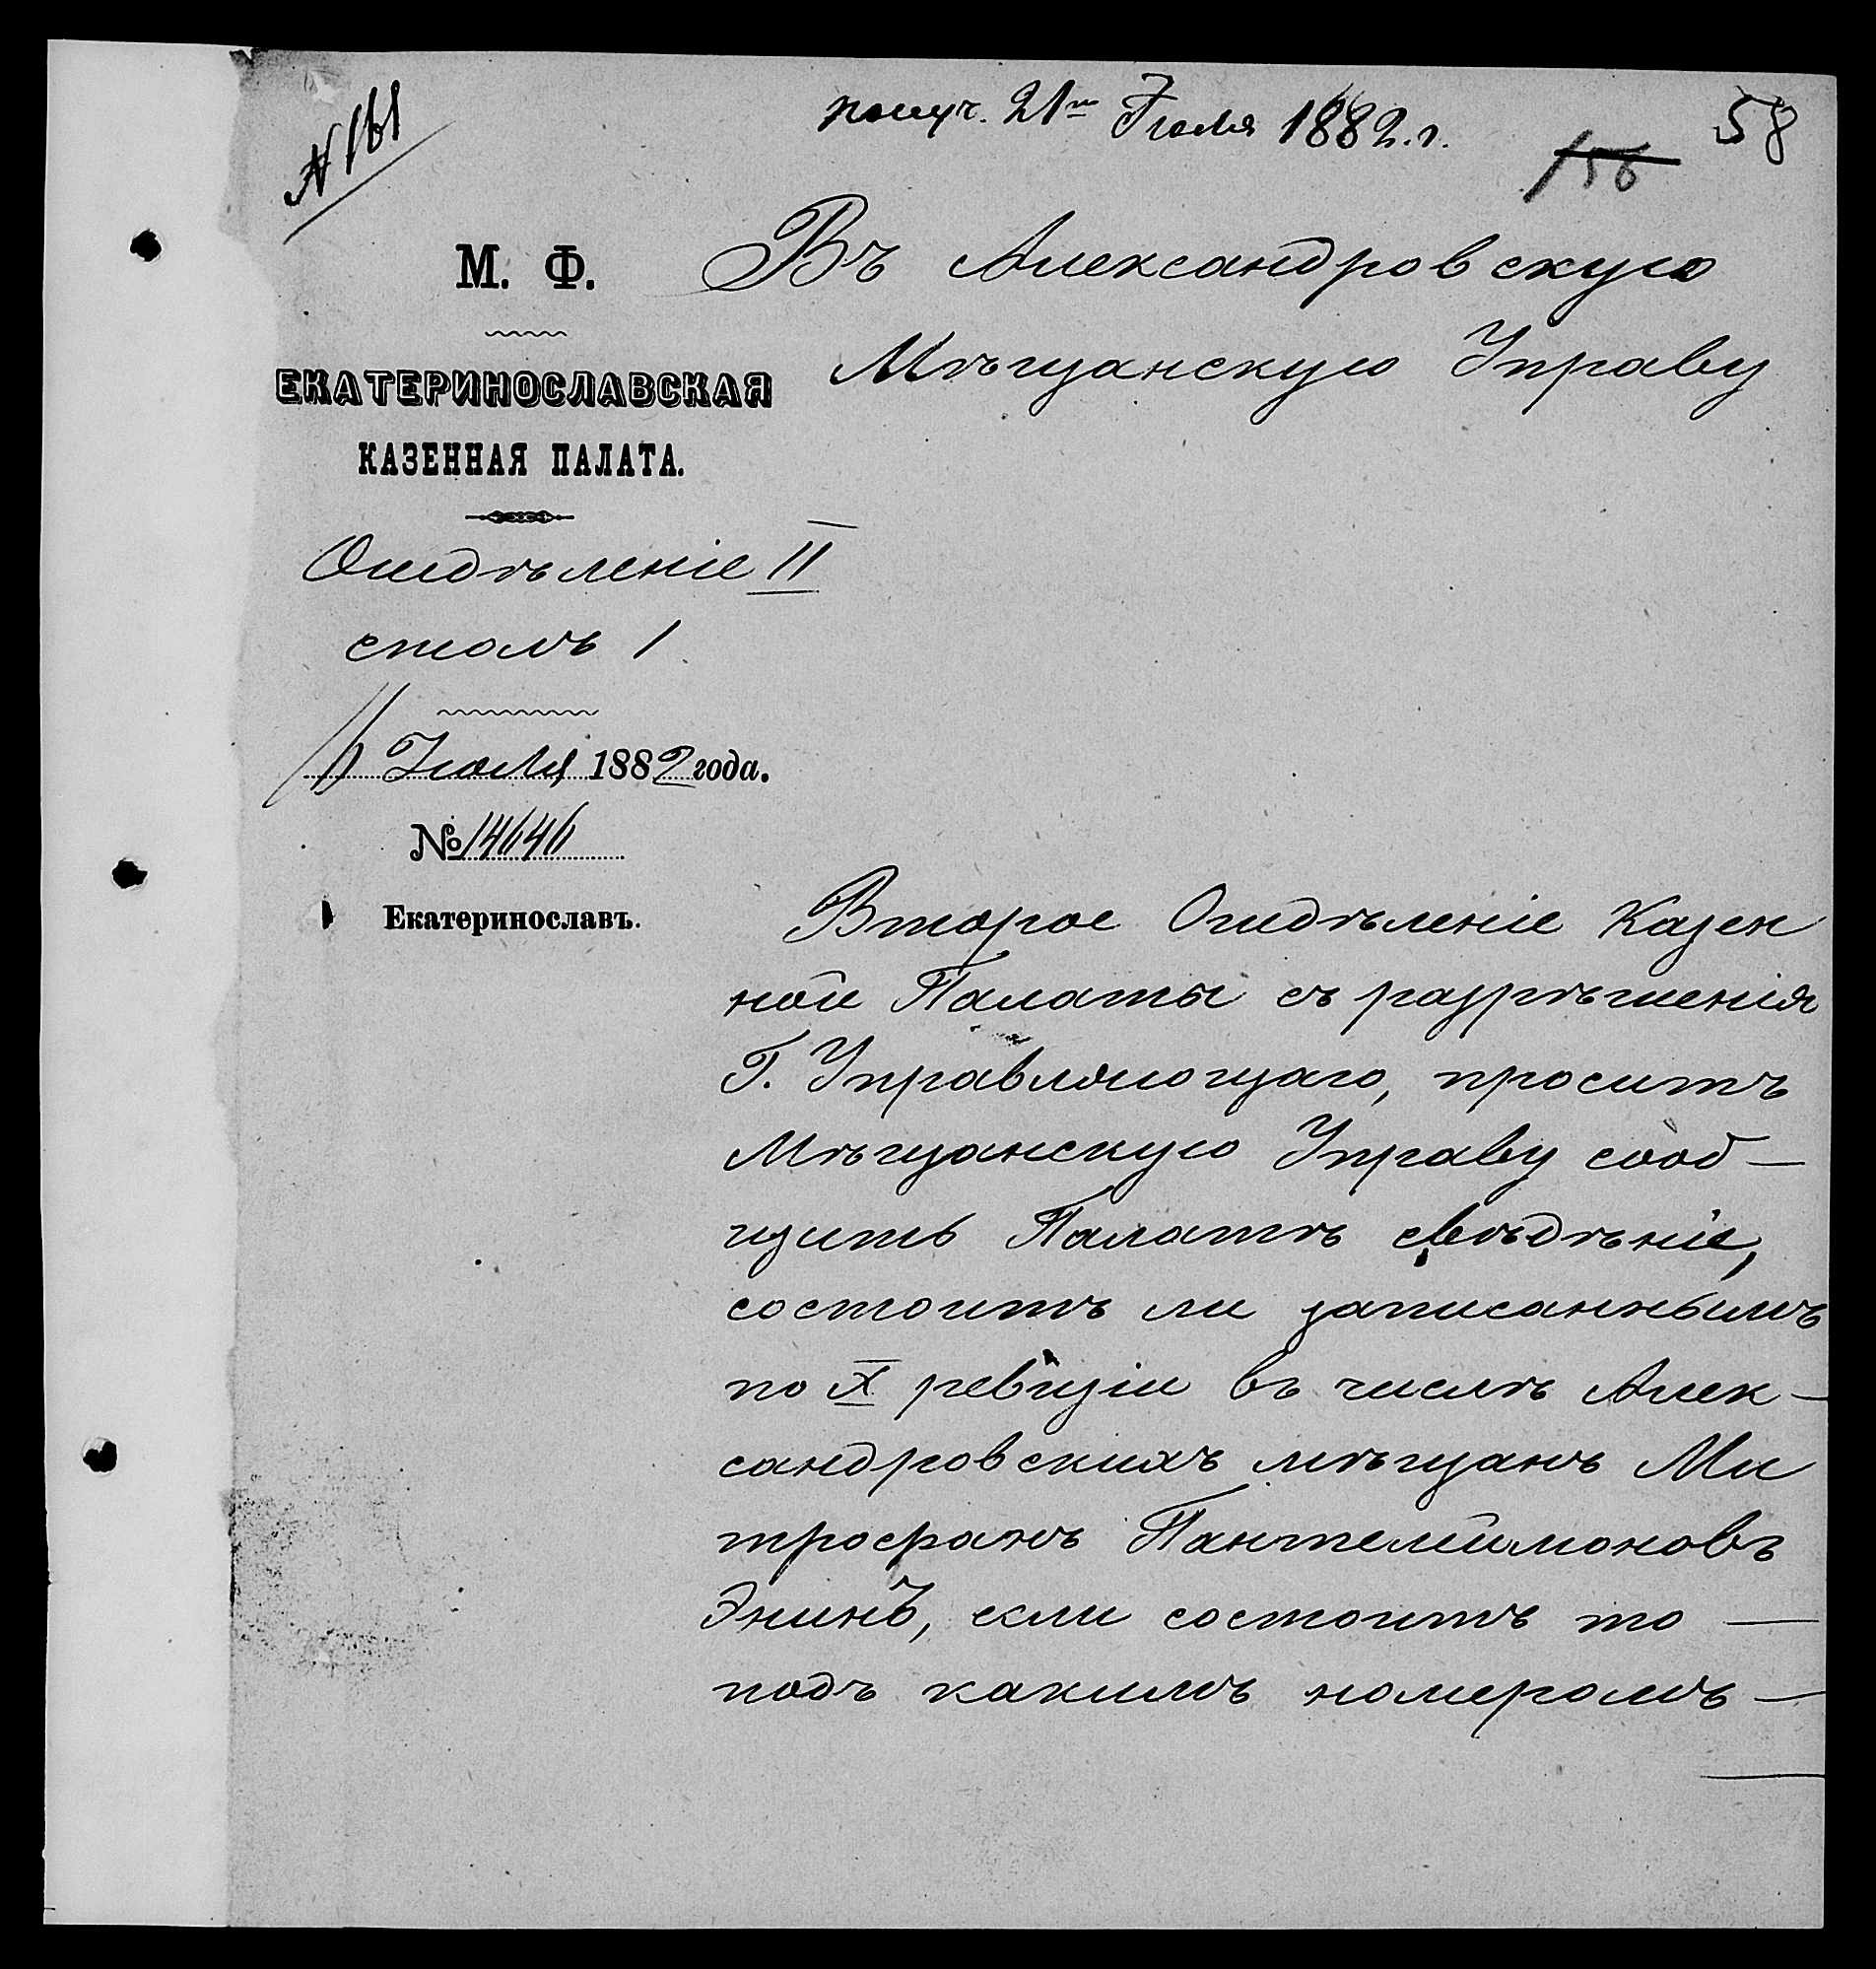 № 161
получ. 21го Іюля 1882. г.
58
156
М. Ф.
ЕКАТЕРИНОСЛАВСКАЯ
КАЗЕННАЯ ПАЛАТА.
Отдѣленіе II
столъ 1.
16 Іюля 1882 года.
№ 14646
Екатеринославъ.
Въ Александровскую
Мѣщанскую Управу
Второе Отдѣленіе Казен
ной Палаты съ разрѣшенія
Г. Управляющаго, проситъ
Мѣщанскую Управу сооб—
щить Палатѣ свѣдѣніе,
состоитъ ли записаннымъ
по X ревизіи въ числѣ Алек—
сандровскихъ мѣщанъ Ми
трофанъ Пантелеймоновъ
Энинъ, если состоитъ то —
подъ какимъ номеромъ —